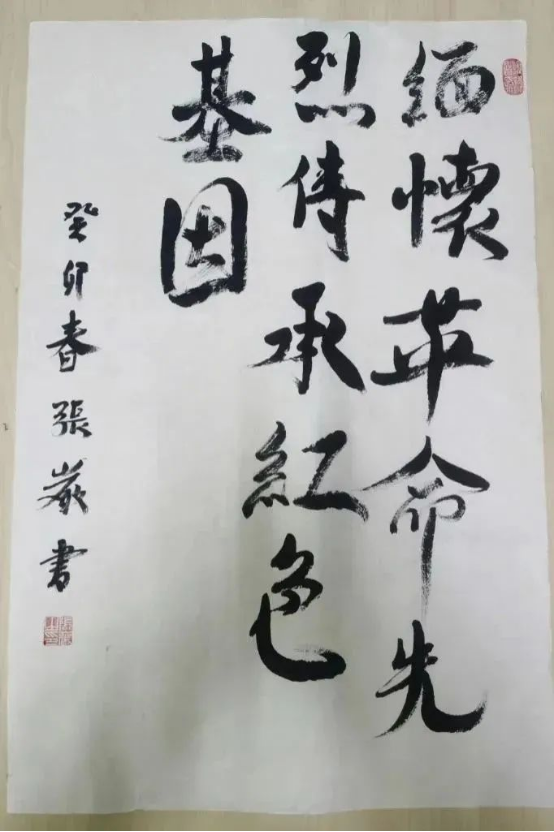 緬懷革命先
烈傳承紅色
基因
癸卯春張嶽書